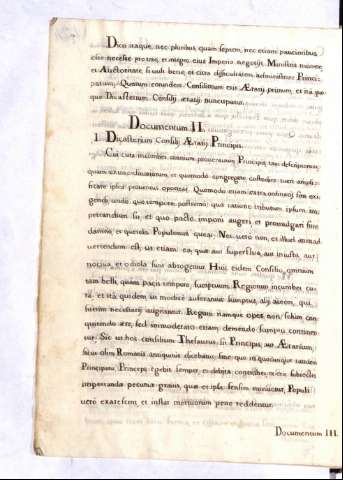 Dico itaque, nec pluribus, quam septem, nec etiam paucioribus
esse necesse pro tanti, et integro eius Imperio negotijs Ministris numero,
et Auctoritate, si vult bene, et citra difficultatem administrare Princi-
patum. Quorum eorundem Consilium erit Ærarij primum, et ita quo-
que Dicasterium Consilij ærarij nuncupatur.
Documentum II.
1. Dicasterium Consilij Ærarij Principis.
Cui cura incumbet omnium prouentuum Principis tam describendi,
quam extraordinariorum, et quomodo congregare, custodire, tueri, ampli-
ficare ipsos prouentus oporteat. Quomodo etiam extraordinarij sint exi-
gendi, unde, quo tempore, postremo qua ratione tributum ipsum im-
petrandum sit, et quo pacto imponi augeri et promulgari sine
damno, et querela Populorum queat. Nec vero non, et illud animad-
uertendum est, ut etiam ea, quæ aut superflua, aut iniusta, aut
nociua, et odiosa sunt abrogentur. Huic eidem Consilio, omnium
tam belli, quam pacis tempore, sumptuum, Regionum incumbet cu-
ra, et ita quidem, ut modice auferantur sumptus, alij autem, qui
fuerint necessarij augeantur. Regum namque opes, non solum con-
quirendo ære, sed immoderato etiam demendo sumptu, continen-
tur. Sic ut hoc consilium Thesaurus sit Principis, aut Ærarium,
sicut olim Romanis antiquitus dicebatur, sine quo in quocunque tandem
Principatu, Princeps egebit semper, et debita contrahet, nec a subditis
impetranda pecunia gratis, quæ et ipsa sensim minuetur, Populi
vero exarescent, et instar mortuorum pene reddentur.
Documentum III.